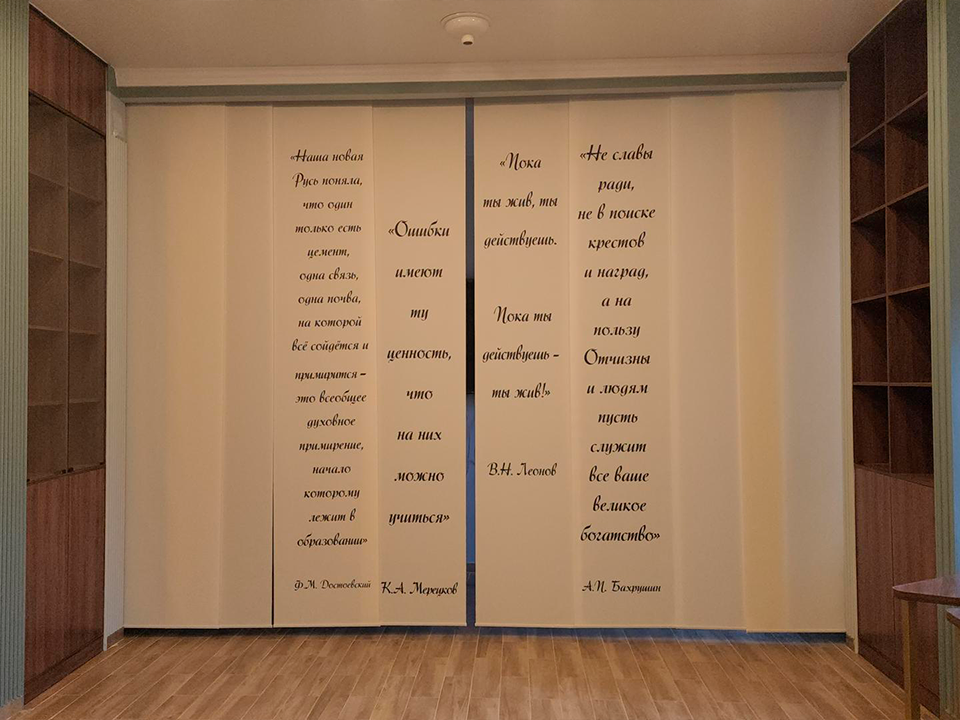 «Наша новая
Русь поняла,
что один
только есть
цемент,
одна связь,
одна почва,
на которой
всё сойдётся и
примирится –
это всеобщее
духовное
примирение,
начало
которому
лежит в
образовании»
Ф.М. Достоевский
«Ошибки
имеют
ту
ценность,
что
на них
можно
учиться»
К.А. Мерецков
«Пока
ты жив, ты
действуешь.
Пока ты
действуешь –
ты жив!»
В.Н. Леонов
«Не славы
ради,
не в поиске
крестов
и наград,
а на
пользу
Отчизны
и людям
пусть
служит
все ваше
великое
богатство»
А.П. Бахрушин